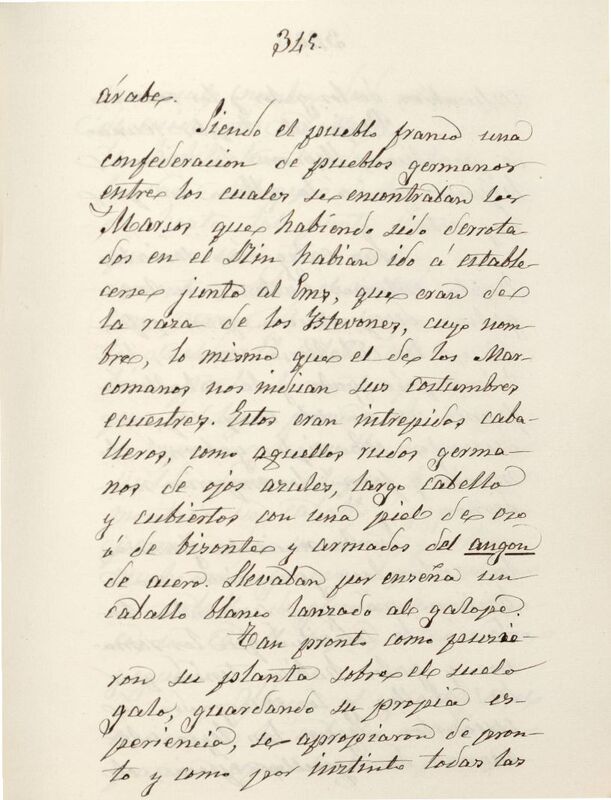 345.
árabe.
Siendo el pueblo franco una
confederacion de pueblos germanos
entre los cuales se encontraban los
Marsos que habiendo sido derrota-
dos en el Rin habian ido á estable-
cerse junto al Ems, que eran de
la raza de los Istevones, cuyo nom-
bre, lo mismo que el de los Mar-
comanos nos indican sus costumbres
ecuestres. Estos eran intrepidos caba-
lleros, como aquellos rudos germa-
nos de ojos azules, largo cabello
y cubiertos con una piel de oso
ó de bizonte y armados del angon
de acero. Llevaban por enseña un
caballo blanco lanzado al galope.
Tan pronto como pusie-
ron su planta sobre el suelo
galo, guardando su propia es-
periencia, se apropiaron de pron-
to y como por instinto todas las